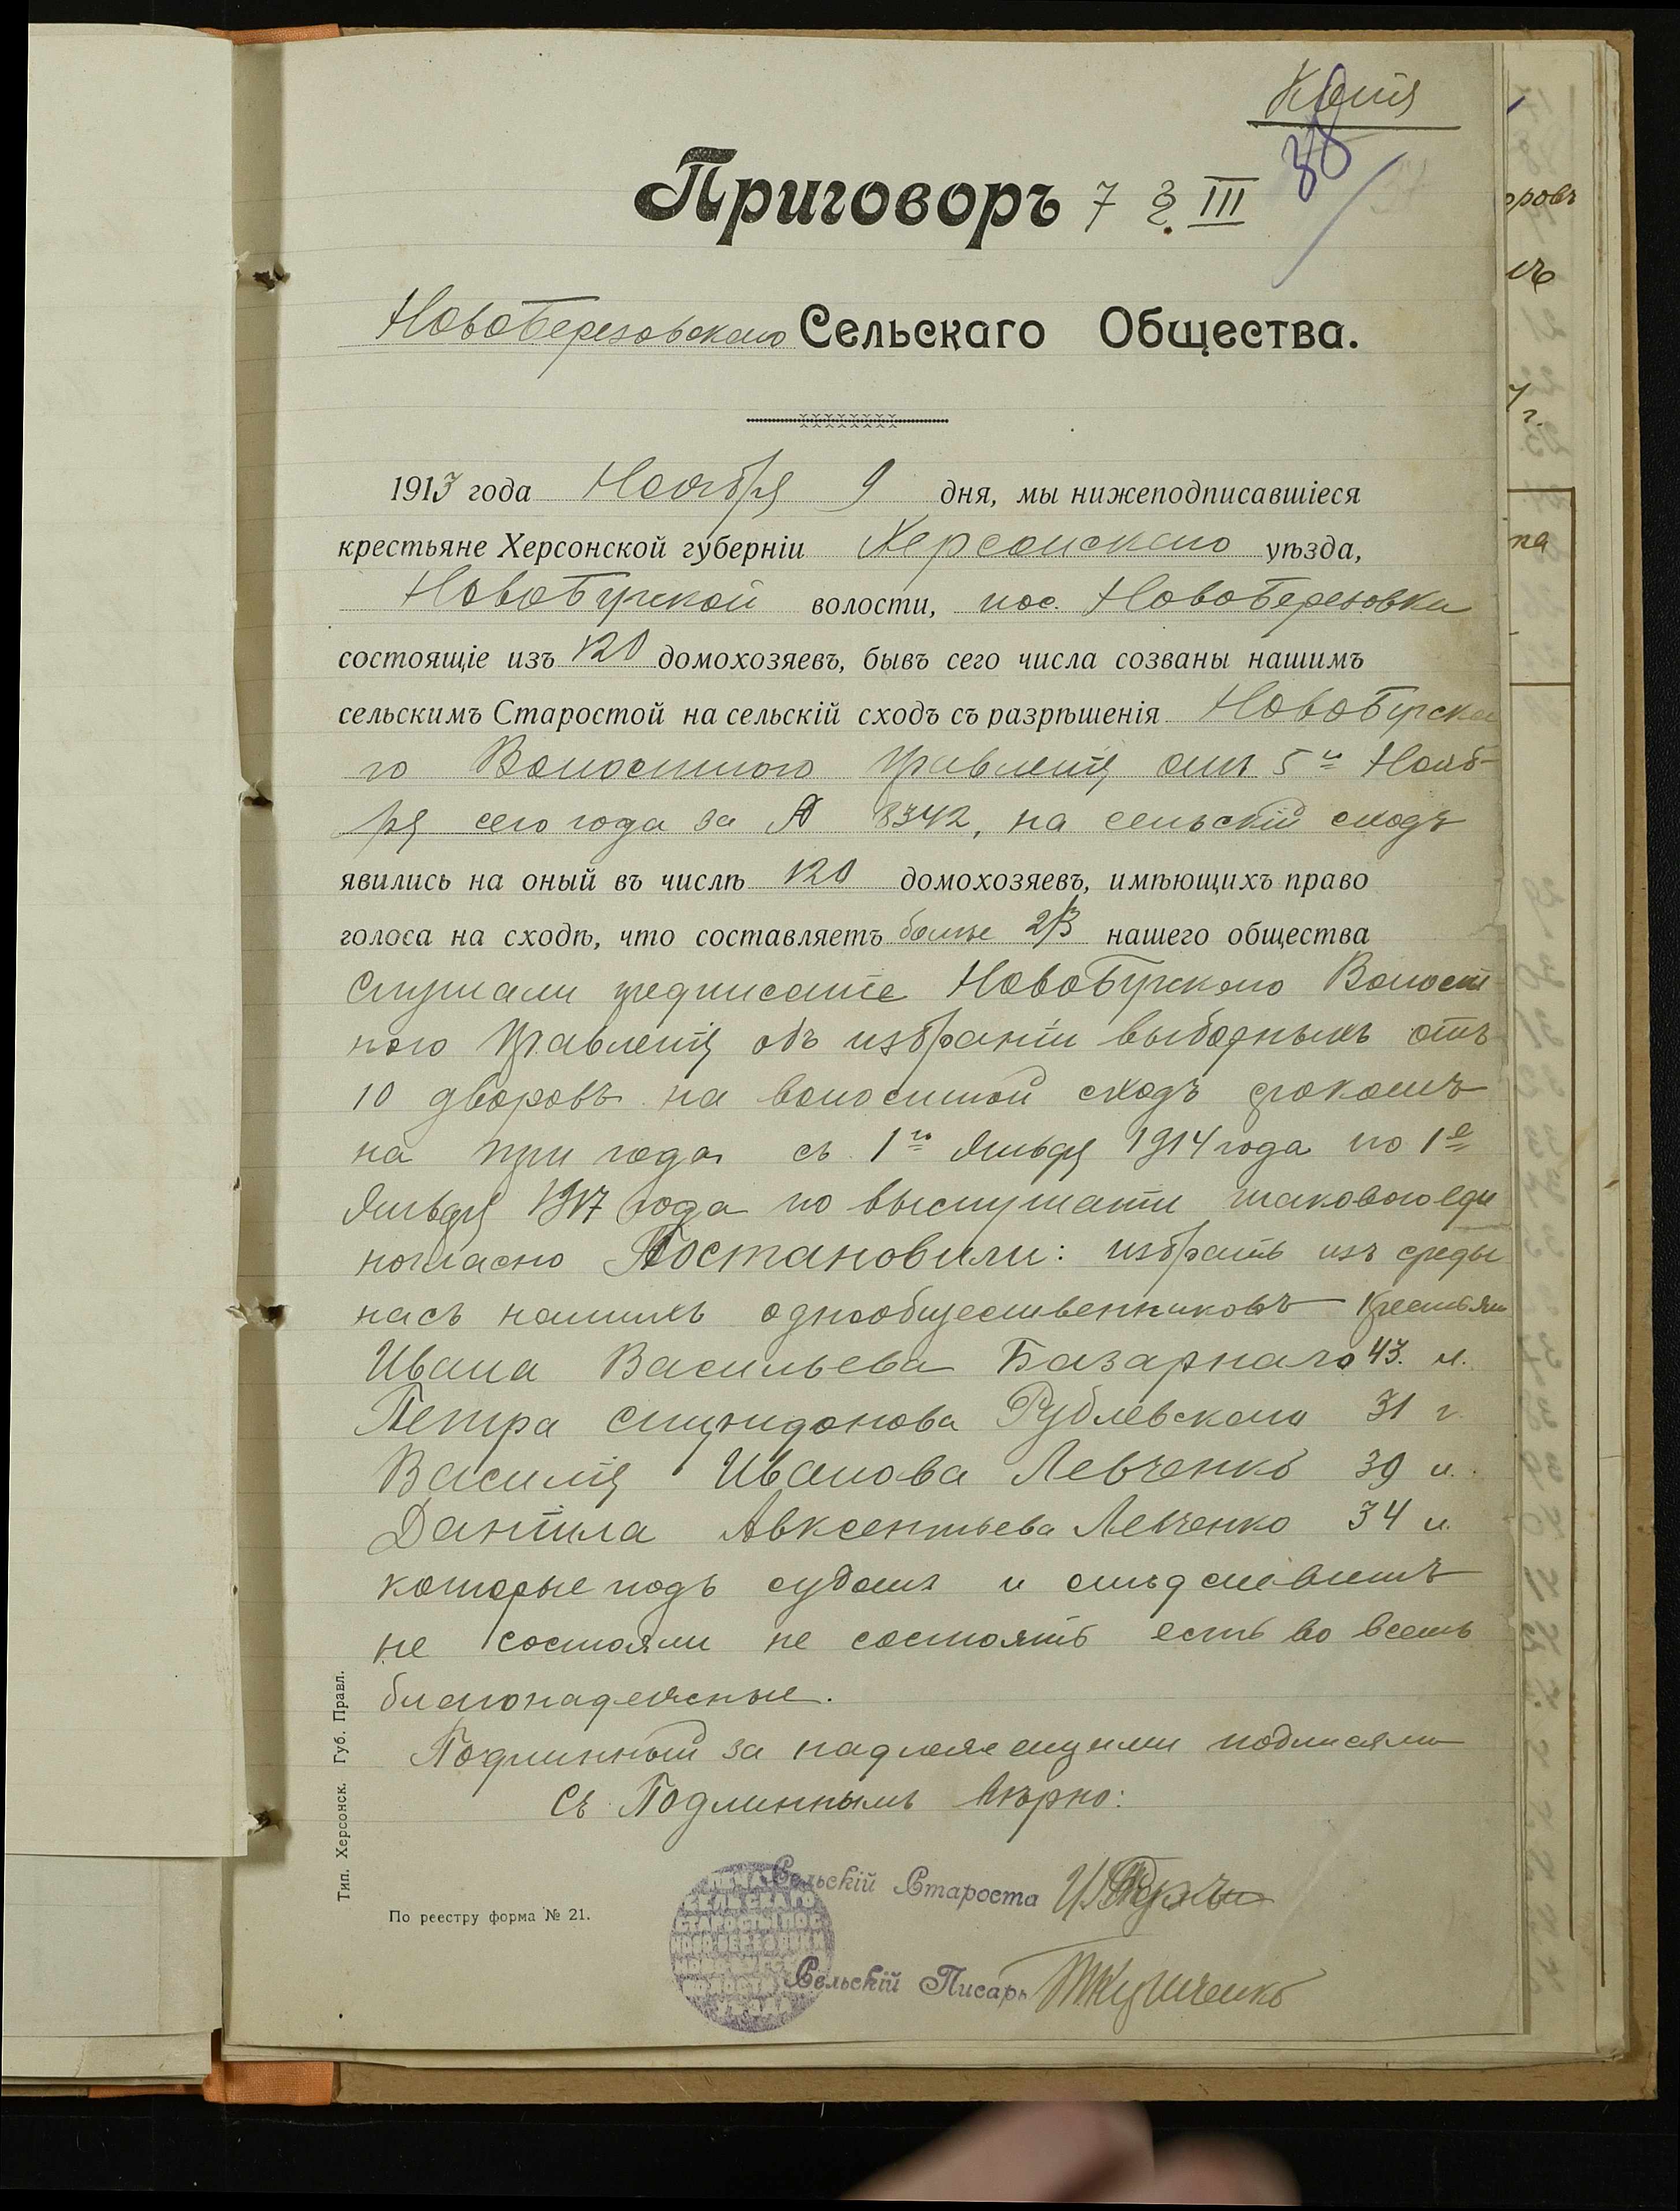 Копія
38
Приговоръ 7 2. III
НовоБерезовскаго Сельскаго Общества.
1913 года Ноября 9 дня, мы нижеподписавшіеся
крестьяне Херсонской губерніи Херсонскаго уѣзда,
НовоБугской волости, пос. НовоБерезовки
состоящіе изъ 120 домохозяевъ, бывъ сего числа созваны нашимъ
сельскимъ Старостой на сельскій сходъ съ разрѣшенія НовоБугска
го Волостного Правленія отъ 5го Нояб-
ря сего года за № 8342, на сельскій сходъ
явились на оный въ числѣ 120 домохозяевъ, имѣющихъ право
голоса на сходѣ, что составляетъ болѣе 2/3 нашего общества
Слушали предписаніе НовоБугскаго Волост-
ного Правленія объ избраніи выборныхъ отъ
10 дворовъ на волостной сходъ срокомъ
на три года съ 1го Января 1914 года по 1е
Января 1917 года по выслушаніи такового еди
ногласно Постановили: избрать изъ среды
насъ нашихъ однообщественниковъ крестьян
Ивана Васильева Базарнаго 43. л.
Петра Спиридонова Рублевскаго 31 г.
Василія Иванова Левченко 39 л.
Даніила Авксентьева Левченко 34 л.
которые подъ судомъ и слѣдствіемъ
не состояли не состоятъ есть во всемъ
благонадежные.
Подлинный за надлежащими подписями
Съ Подлиннымъ вѣрно:
Сельскій Староста
Сельскій Писарь
По реестру форма № 21.
Тип. Херсонск. Губ. Правл.
ПЕЧАТЬ
СЕЛЬСКАГО
СТАРОСТЫ ПОС
НОВО-БЕРЕЗОВКИ
оровъ
на